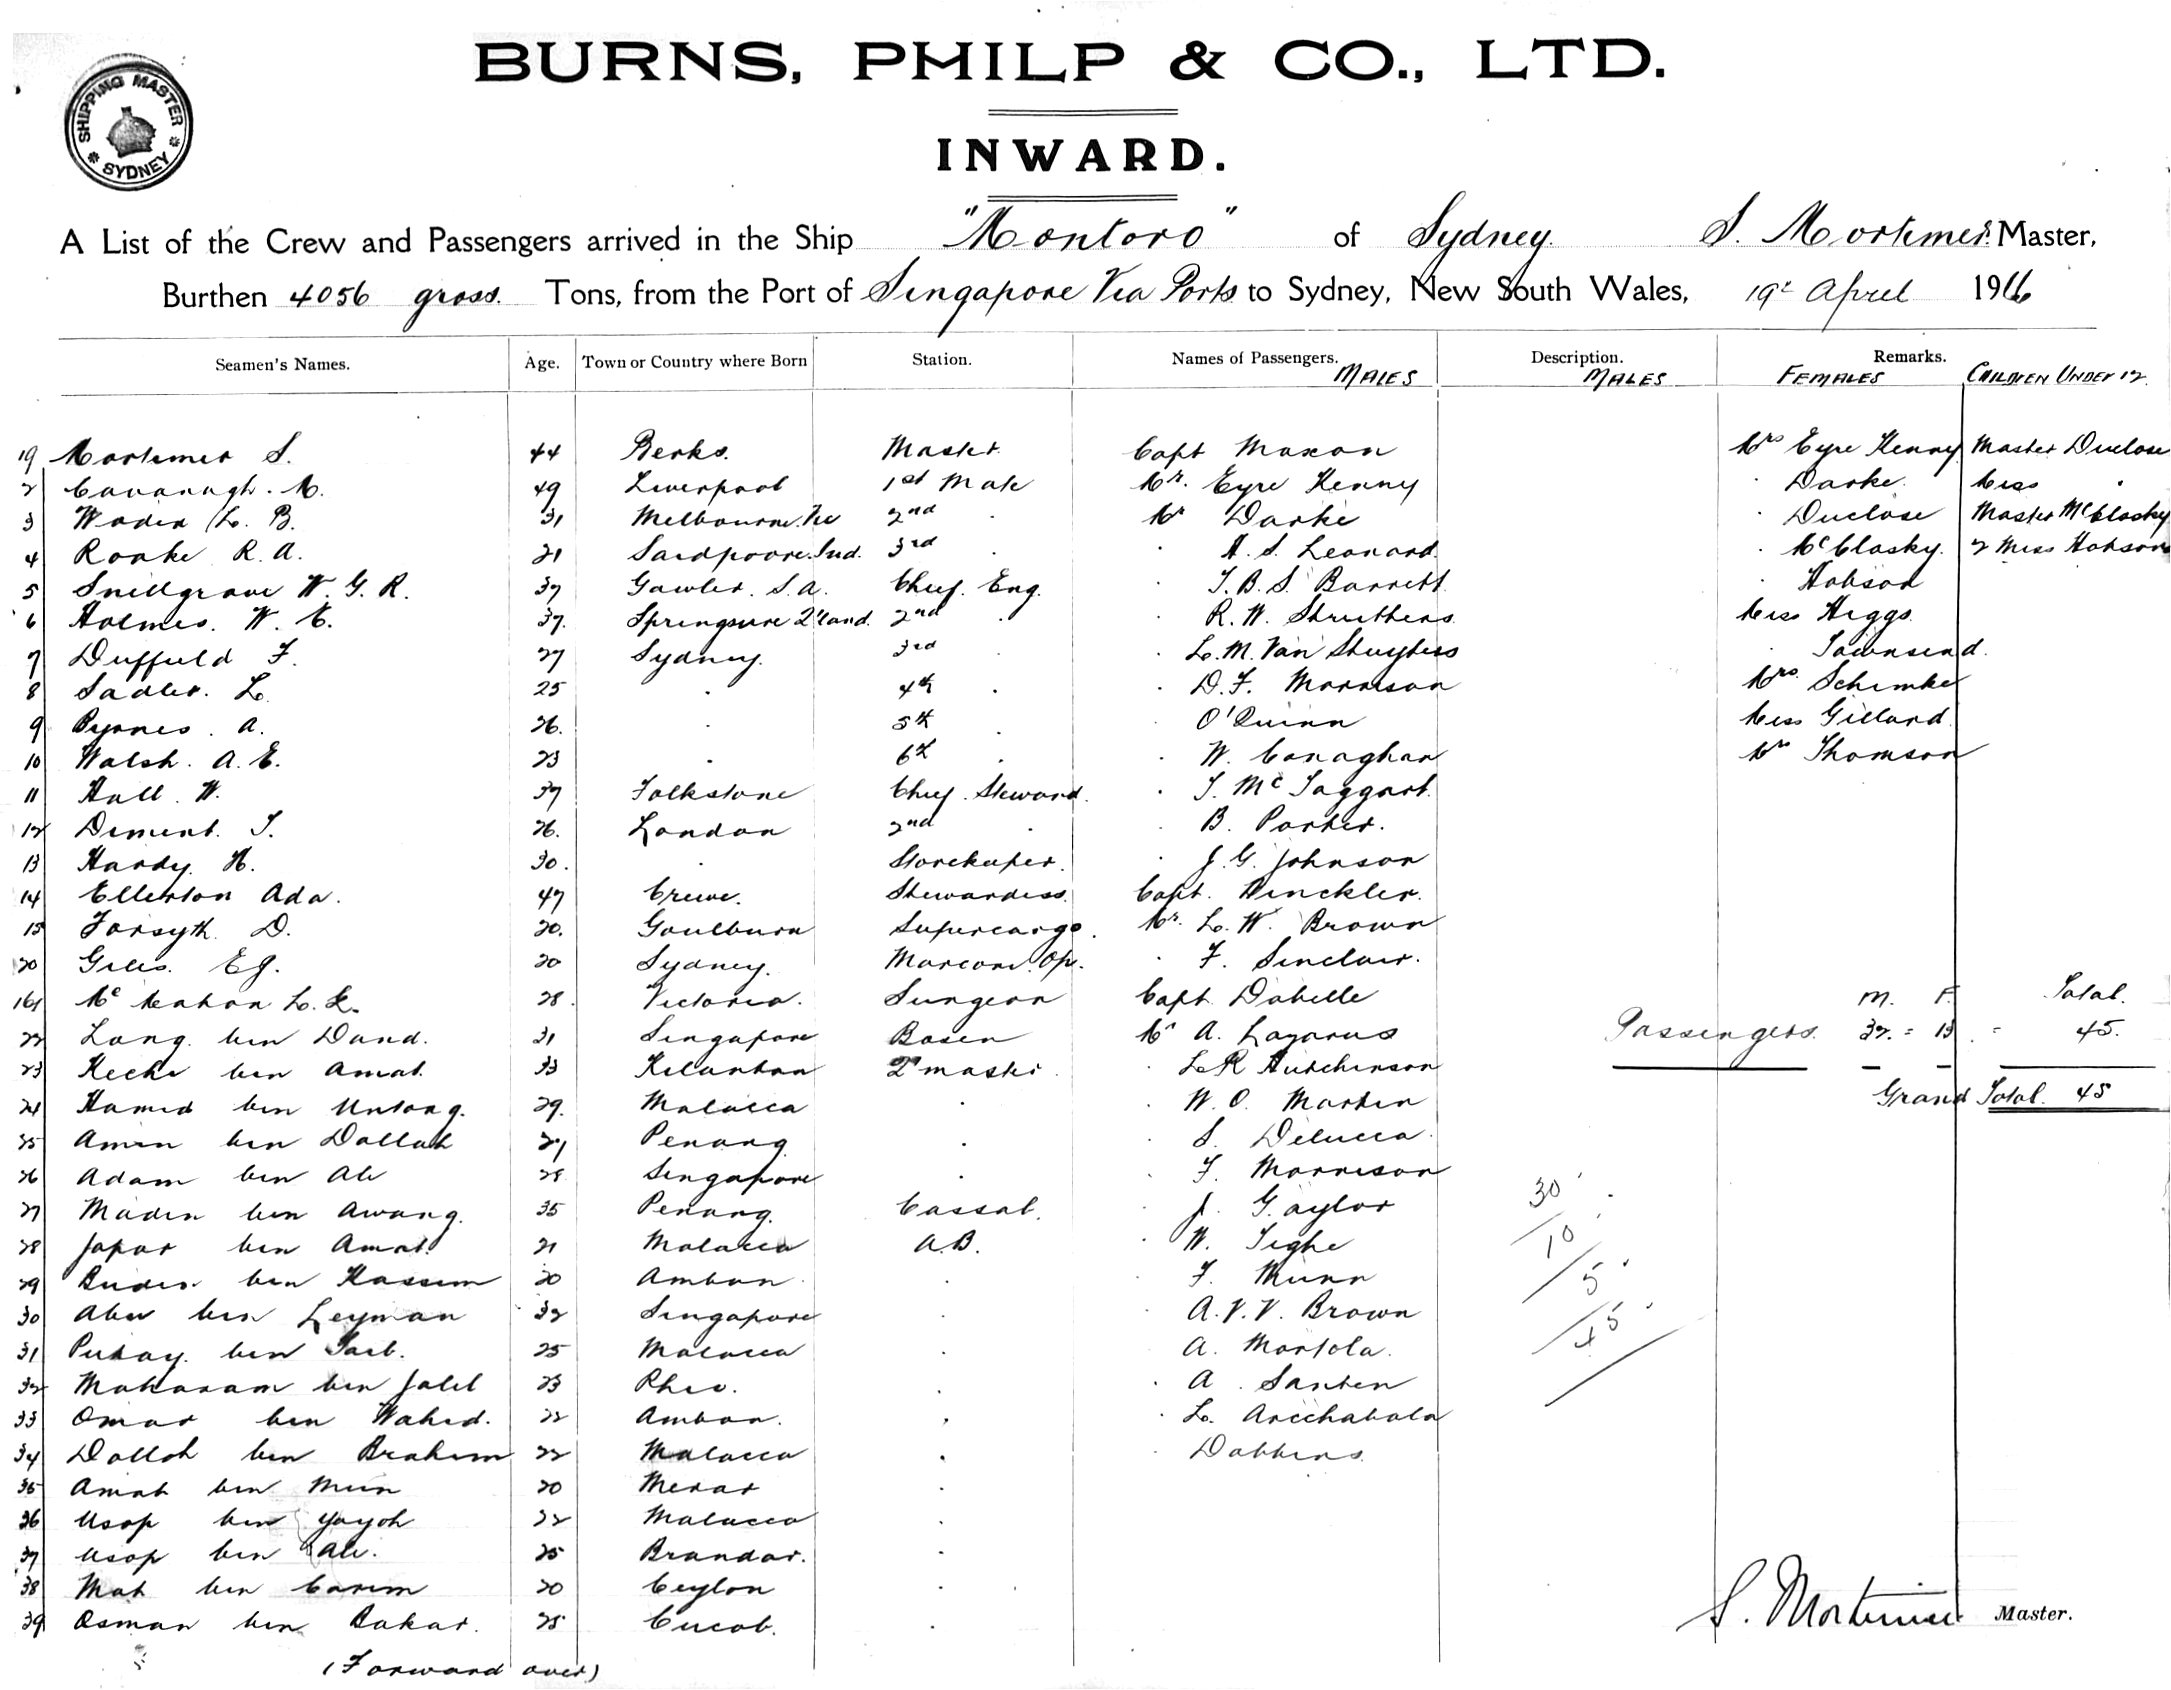 BURNS, PHILP & CO., LTD.
SHIPPING MASTER
SYDNEY
INWARD.
A List of the Crew and Passengers arrived in the Ship "Montoro" of Sydney S. Mortimer Master,
Burthen 4056 gross. Tons, from the Port of Singapore Via Ports to Sydney, New South Wales, 19th April 1916
Seamen's Names. Age. Town or Country where Born Station. Names of Passengers. Description. Remarks.
MALES MALES FEMALES CHILDREN UNDER 12
19 Mortimer S. 44 Berks. Master. Capt Maxon Mrs Eyre Kenny Master Duclose
2 Cavanagh. M. 49 Liverpool 1st Mate Mr. Eyre Kenny " Darke. Miss "
3 L. B. 31 Melbourne. Vic 2nd " Mr Darke " Duclose Master McClosky
4 Roake R. A. 21 Ind. 3rd " " H. S. Leonard " McClosky. 2 Miss Hobson
5 Snellgrove W. G. R. 37 Gawler. S.A. Chief. Eng. " T. B. S. Barrett " Hobson
6 Holmes. W. C. 37. Springsure Q'land. 2nd " " R. W. Struthers Miss Higgs.
7 Duffield F. 27 Sydney. 3rd " " L. M. Van " Townsend.
8 Sadler. L. 25 " 4th " " D. F. Morrison Mrs. Schimke
9 Byrnes. A. 26. " 5th " " O'Quinn Miss Gillard
10 Walsh. A. E. 23 " 6th " " W. Conaghan Mrs Thomson
11 Hall. W. 37 Folkstone Chief. Steward. " T. McTaggart.
12 Dement. T. 26. London 2nd " " B. Porter.
13 Hardy. H. 30. " Storekeeper. " J. G. Johnson
14 Ellerton Ada. 47 Crewe. Stewardess. Capt. Winckler.
15 Forsyth. D. 20. Goulburn Supercargo. Mr. L. W. Brown
20 Giles. EJ. 20 Sydney. Marconi. Op. " F. Sinclair.
16 McMahon L. L. 28. Victoria. Surgeon Capt. Dabelle M. F. Total.
22 Long. ben Daud. 31 Singapore Bosen Mr A. Lazarus Passengers. 32. = 13. = 45.
23 Keche ben Amat. 33 Kelantan 2nd " L R Hutchinson
24 Hamid ben Untong. 29. Malacca " " W. O. Martin Grand Total. 45
25 Amin ben Dollah 27 Penang " " S. Delucca.
26 Adam ben Ali 28 Singapore " " F. Morrison
27 Madin ben Awang. 35 Penang. Cassab. " J. Gaylor 30
28 Japar ben Amat. 21 Malacca A.B. " W. Tighe 10
29 Budin ben Kassim 20 Ambon. " " F. Munn 5
30 Abu ben Leyman 32 Singapore " " A. V. V. Brown
31 ben 25 Malacca " " A. Mortola. 45
32 Maharam ben Jalil 23 Rhio. " " A. Santen
33 Omar ben Wahid. 22 Ambon. " " L. Arechabala
34 Dolloh ben Brahim 22 Malacca " " Dobbins.
35 Amat ben Min 20 Merar "
36 Usop ben Yayoh 22 Malacca "
37 Usop ben Ali. 25 Brandar. "
38 Mat ben Carim 20 Ceylon "
39 Osman ben Bakar. 25 Cucob. "
S. Mortimer Master.
(Forward over)